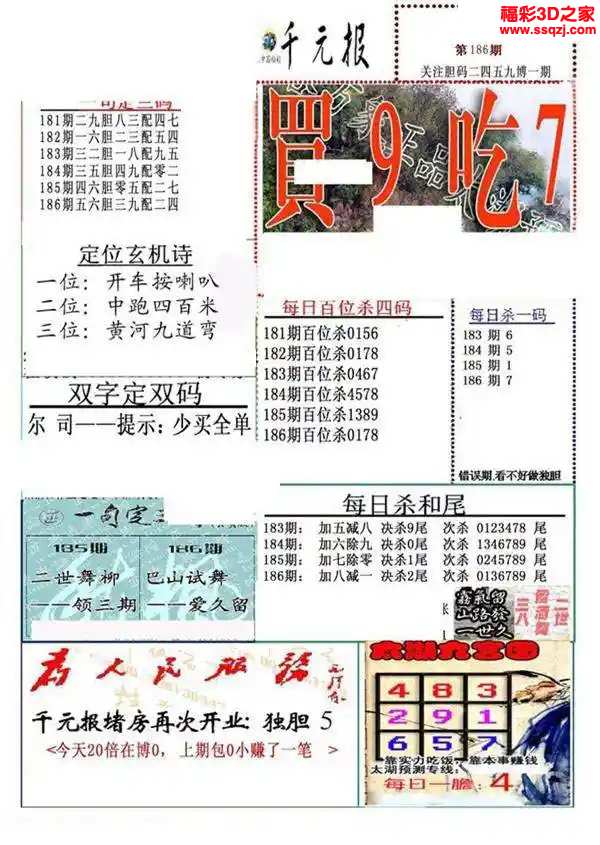 福彩3D之家
www.ssqzj.com
千元报
第186期
关注胆码二四五九博一期
一句定三码
181期二九胆八三配四七
182期一六胆二三配五四
183期三二胆一八配九五
184期三五胆四九配零二
185期四六胆零五配二七
186期五六胆三九配二四
買9吃7
定位玄机诗
一位：开车按喇叭
二位：中跑四百米
三位：黄河九道弯
双字定双码
尔 司——提示：少买全单
每日百位杀四码
181期百位杀0156
182期百位杀0178
183期百位杀0467
184期百位杀4578
185期百位杀1389
186期百位杀0178
每日杀一码
183 期 6
184 期 5
185 期 1
186 期 7
错误期,看不好做独胆
一句定三
185期
二世舞柳
——领三期
186期
巴山试舞
——爱久留
每日杀和尾
183期： 加五减八 决杀9尾 次杀 0123478 尾
184期： 加六除九 决杀0尾 次杀 1346789 尾
185期： 加七除零 决杀1尾 次杀 0245789 尾
186期： 加八减一 决杀2尾 次杀 0136789 尾
为人民服务
千元报堵房再次开业：独胆 5
<今天20倍在博0，上期包0小赚了一笔 >
太湖九宫图
4 8 3
2 9 1
6 5 7
靠实力吃饭，靠本事赚钱
太湖预测专线：
每日一胆：4